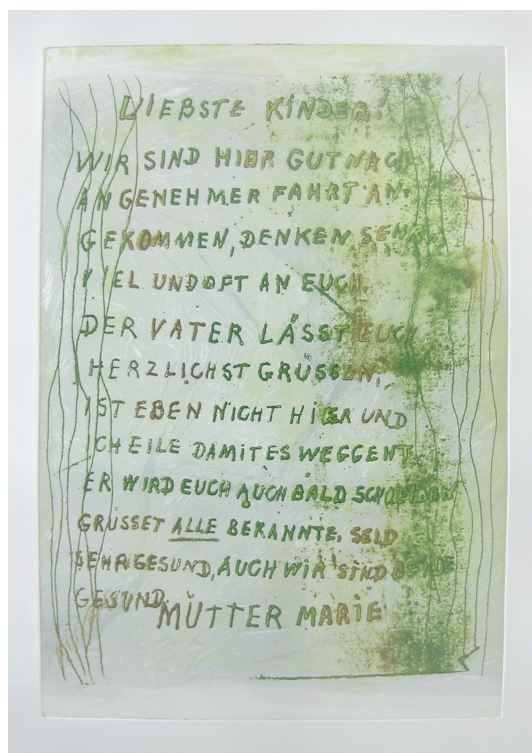 LIEBSTE KINDER!
WIR SIND HIER GUT NACH
ANGENEHMER FAHRT AN-
GEKOMMEN, DENKEN SEHR
VIEL UND OFT AN EUCH.
DER VATER LÄSST EUCH
HERZLICHST GRÜSSEN,
IST EBEN NICHT HIER UND
ICH EILE DAMIT ES WEGGEHT.
ER WIRD EUCH AUCH BALD SCHREIBEN
GRÜSSET ALLE BEKANNTE, SEID
SEHR GESUND, AUCH WIR SIND BEIDE
GESUND.
MUTTER MARIE